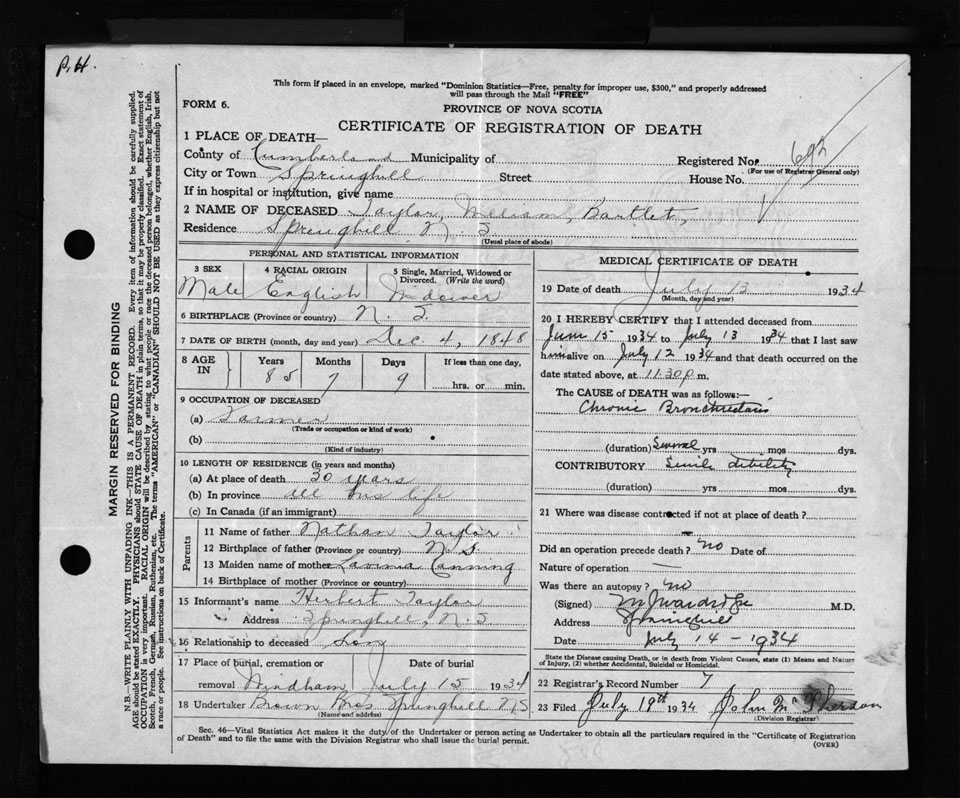 P. H.
This form if placed in an envelope, marked "Dominion Statistics—Free, penalty for improper use, $300," and properly addressed
will pass through the Mail "FREE"
FORM 6.
PROVINCE OF NOVA SCOTIA
CERTIFICATE OF REGISTRATION OF DEATH
1 PLACE OF DEATH—
County of Cumberland Municipality of Registered No.
(For use of Registrar General only)
City or Town Springhill Street House No.
If in hospital or institution, give name
2 NAME OF DECEASED Taylor, William, Bartlet,
Residence Springhill N. S.
(Usual place of abode)
PERSONAL AND STATISTICAL INFORMATION
3 SEX 4 RACIAL ORIGIN 5 Single, Married, Widowed or
Divorced. (Write the word)
Male English Widower
6 BIRTHPLACE (Province or country) N. S.
7 DATE OF BIRTH (month, day and year) Dec 4, 1848
8 AGE IN Years Months Days If less than one day,
85 7 9 hrs. or min.
9 OCCUPATION OF DECEASED
(a) Farmer
(Trade or occupation or kind of work)
(b)
(Kind of industry)
10 LENGTH OF RESIDENCE (in years and months)
(a) At place of death 30 years
(b) In province all his life
(c) In Canada (if an immigrant)
Parents
11 Name of father Nathan Taylor
12 Birthplace of father (Province or country) N. S.
13 Maiden name of mother Lavinia Canning
14 Birthplace of mother (Province or country)
15 Informant's name Herbert Taylor
Address Springhill, N. S
16 Relationship to deceased Son
17 Place of burial, cremation or Date of burial
removal Windham July 15 1934
18 Undertaker Brown Bros Springhill NS
(Name and address)
MEDICAL CERTIFICATE OF DEATH
19 Date of death July 13 1934
(Month, day and year)
20 I HEREBY CERTIFY that I attended deceased from
June 15 1934 to July 13 1934 that I last saw
him alive on July 12 1934 and that death occurred on
date stated above, at 11.30 p.m.
The CAUSE of DEATH was as follows:—
Chronic
(duration) Several yrs mos dys.
CONTRIBUTORY Senile debility
(duration) yrs mos dys.
21 Where was disease contracted if not at place of death?
Did an operation precede death? no Date of
Nature of operation —
Was there an autopsy? no
(Signed) M.D.
Address Springhill
Date July 14 - 1934
State the Disease causing Death, or in death from Violent Causes, state (1) Means and Nature
of Injury, (2) whether Accidental, Suicidal or Homicidal.
22 Registrar's Record Number 7
23 Filed July 19th 1934 John McPherson
(Division Registrar)
Sec. 46—Vital Statistics Act makes it the duty of the Undertaker or person acting as Undertaker to obtain all the particulars required in the "Certificate of Registration
of Death" and to file the same with the Division Registrar who shall issue the burial permit.
(OVER)
MARGIN RESERVED FOR BINDING
N.B.—WRITE PLAINLY WITH UNFADING INK—THIS IS A PERMANENT RECORD. Every item of information should be carefully supplied.
AGE should be stated EXACTLY. PHYSICIANS should STATE CAUSE OF DEATH in plain terms, so that it may be properly classified. Exact statement of
OCCUPATION is very important. RACIAL ORIGIN will be described by stating to what people or race the deceased person belonged, whether English, Irish,
Scotch, French, German, Russian, Ruthenian, etc. The terms "AMERICAN" or "CANADIAN" SHOULD NOT BE USED as they express citizenship but not
a race or people. See instructions on back of Certificate.